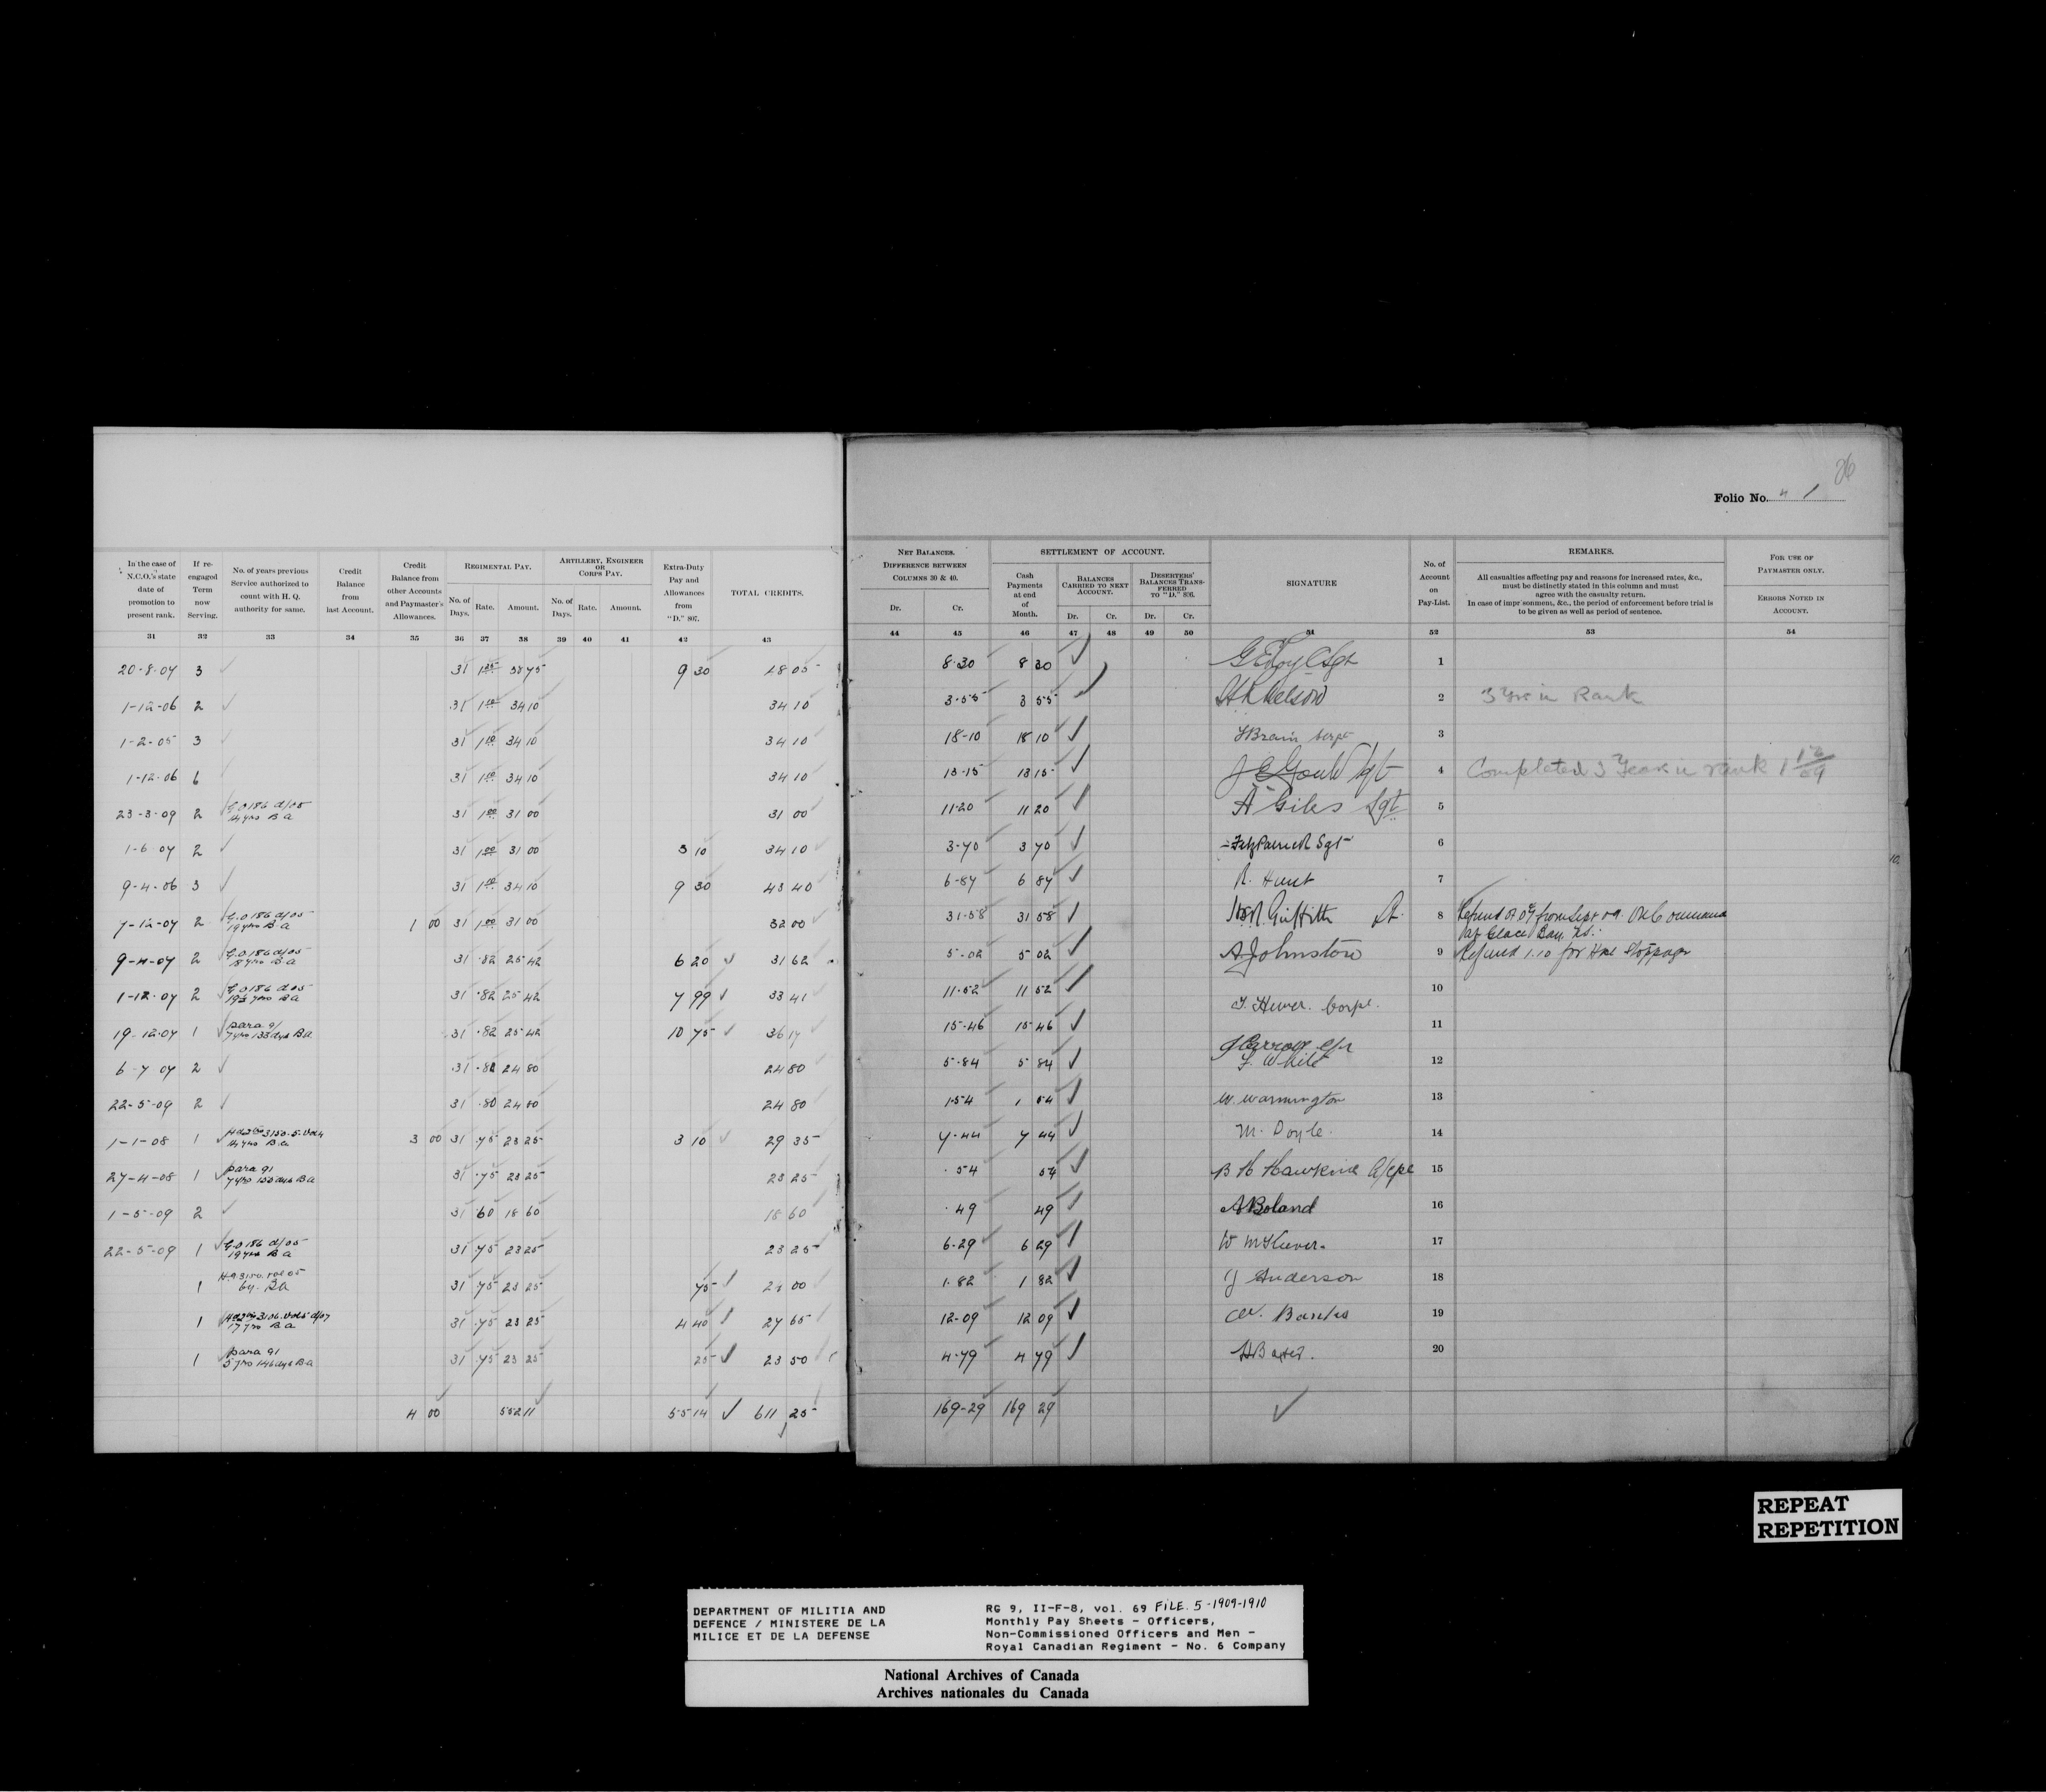 26
Folio No. 4 1
In the case of N.C.O.'s state date of promotion to present rank.
If re-engaged Term now Serving.
No. of years previous Service authorized to count with H. Q. authority for same.
Credit Balance from last Account.
Credit Balance from other Accounts and Paymaster's Allowances.
REGIMENTAL PAY.
No. of Days. Rate. Amount.
ARTILLERY, ENGINEER OR CORPS PAY.
No. of Days. Rate. Amount.
Extra-Duty Pay and Allowances from "D." 807.
TOTAL CREDITS.
31 32 33 34 35 36 37 38 39 40 41 42 43
20-8-07 3 31 1.25 38 75 9 30 48 05
1-12-06 2 31 1.10 34 10 34 10
1-2-05 3 31 1.10 34 10 34 10
1-12-06 6 31 1.10 34 10 34 10
23-3-09 2 G.O 186 d/05 14 yrs B a 31 1.00 31 00 31 00
1-6-07 2 31 1.00 31 00 3 10 34 10
9-4-06 3 31 1.10 34 10 9 30 43 40
7-12-07 2 G.O 186 d/05 19 yrs B a 1 00 31 1.00 31 00 32 00
9-4-07 2 G.O 186 d/05 18 yrs B a 31 .82 25 42 6 20 31 62
1-12-07 2 G.O 186 d/05 B a 31 .82 25 42 7 99 33 41
19-12-07 1 para 91 7 yrs 133 dys B a 31 .82 25 42 10 75 36 17
6-7-07 2 31 .80 24 80 24 80
22-5-09 2 31 .80 24 80 24 80
1-1-08 1 14 yrs B.a. 3 00 31 .75 23 25 3 10 29 35
27-4-08 1 para 91 7 yrs 133 dys B a 31 .75 23 25 23 25
1-5-09 2 31 .60 18 60 18 60
22-5-09 1 G.O 186 d/05 19 yrs B a 31 .75 23 25 23 25
1 6 y. B a 31 .75 23 25 75 24 00
1 17 yrs B a 31 .75 23 25 4 40 27 65
1 para 91 5 yrs 146 dys B a 31 .75 23 25 25 23 50
4 00 552 11 55 14 611 25
NET BALANCES. DIFFERENCE BETWEEN COLUMNS 30 & 40.
Dr. Cr.
SETTLEMENT OF ACCOUNT.
Cash Payments at end of Month.
BALANCES CARRIED TO NEXT ACCOUNT.
Dr. Cr.
DESERTERS' BALANCES TRANSFERRED TO "D." 806.
Dr. Cr.
SIGNATURE
No. of Account on Pay-List.
REMARKS.
All casualties affecting pay and reasons for increased rates, &c., must be distinctly stated in this column and must agree with the casualty return.
In case of imprisonment, &c., the period of enforcement before trial is to be given as well as period of sentence.
FOR USE OF PAYMASTER ONLY.
ERRORS NOTED IN ACCOUNT.
44 45 46 47 48 49 50 51 52 53 54
8.30 8 30 1
3.55 3 55 H Nelson 2 3 Yrs in Rank
18-10 18 10 Brain Sergt 3
13-15 13 15 J E Gould Sgt 4 Completed 3 Years in rank 1 12/09
11.20 11 20 A Giles Sgt 5
3-70 3 70 Fitzpatrick Sgt 6
6-87 6 87 R. Hunt 7
31-58 31 58 Griffith 8 Refund of from Sept 09. On Command at Glace Bay. N.S.
5-02 5 02 A Johnston 9 Refund 1.10 for Hosp Stoppages
11.52 11 52 Corpl. 10
15.46 15 46 11
5.84 5 84 White 12
1.54 1 54 W. Warmington 13
7-44 7 44 M. Doyle. 14
.54 54 B H Hawkins A/Cpl 15
.49 49 A Boland 16
6-29 6 29 W McKiever. 17
1.82 1 82 J Anderson 18
12-09 12 09 W. Banks 19
4-79 4 79 H Baxter. 20
169-29 169 29
REPEAT
REPETITION
DEPARTMENT OF MILITIA AND
DEFENCE / MINISTERE DE LA
MILICE ET DE LA DEFENSE
RG 9, II-F-8, vol. 69 FILE. 5-1909-1910
Monthly Pay Sheets - Officers,
Non-Commissioned Officers and Men -
Royal Canadian Regiment - No. 6 Company
National Archives of Canada
Archives nationales du Canada